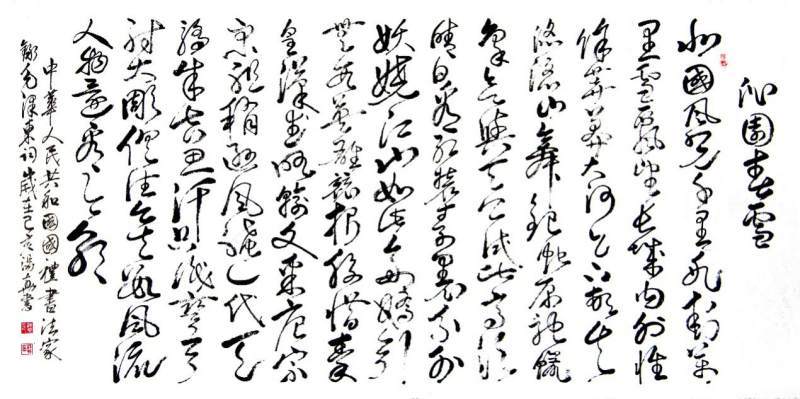 沁園春雪
北國風光千里冰封萬
里雪飄望長城內外惟
餘莽莽大河上下頓失
滔滔山舞銀蛇原馳蠟
象欲與天公試比高須
晴日看紅裝素裹分外
妖嬈江山如此多嬌引
無數英雄競折腰惜秦
皇漢武略輸文采唐宗
宋祖稍遜風騷一代天
驕成吉思汗只識彎弓
射大雕俱往矣數風流
人物還看今朝
中華人民共和國國禮書法家
錄毛澤東詞歲在己亥湯書